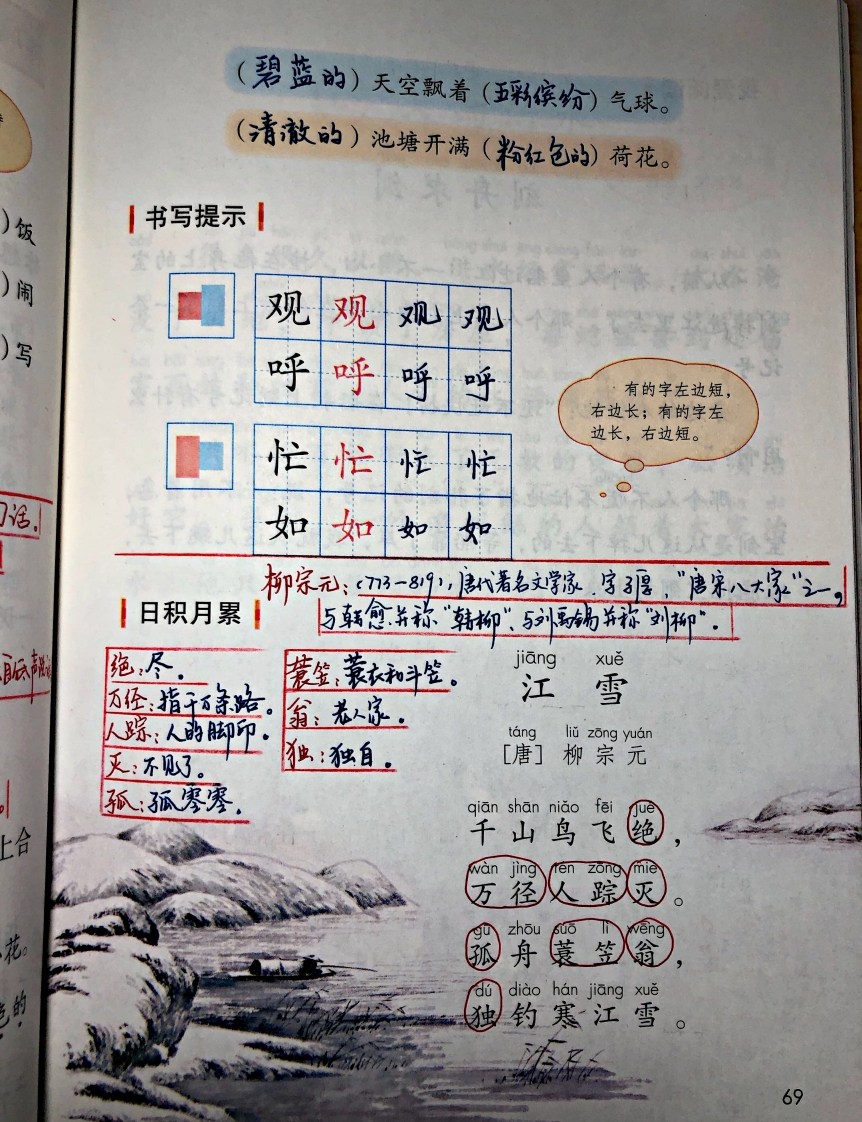 (碧蓝的)天空飘着(五彩缤纷)气球。
(清澈的)池塘开满(粉红色的)荷花。
)饭
)闹
)写
书写提示
观 观 观 观
呼 呼 呼 呼
忙 忙 忙 忙
如 如 如 如
有的字左边短，
右边长；有的字左
边长，右边短。
话.
柳宗元：(773—819)，唐代著名文学家.字子厚，"唐宋八大家"之一，
与韩愈并称"韩柳"、与刘禹锡并称"刘柳"。
日积月累
绝：尽。
万径：指千万条路。
人踪：人的脚印。
灭：不见了。
孤：孤零零。
蓑笠：蓑衣和斗笠。
翁：老人家。
独：独自。
jiāng xuě
江 雪
táng liǔ zōng yuán
[唐] 柳宗元
qiān shān niǎo fēi jué
千山鸟飞绝，
wàn jìng rén zōng miè
万径人踪灭。
gū zhōu suō lì wēng
孤舟蓑笠翁，
dú diào hán jiāng xuě
独钓寒江雪。
上合
花。
色的
69